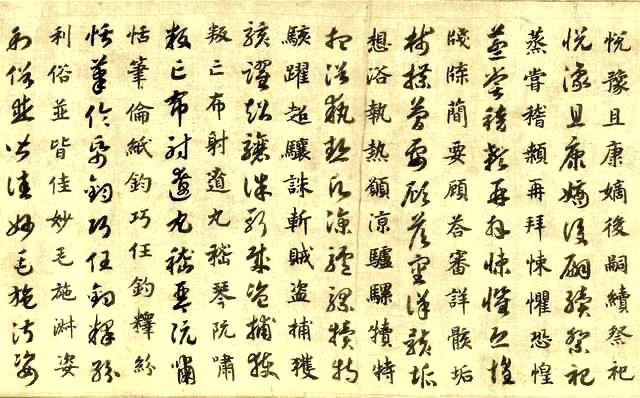 悅豫且康嫡後嗣續祭祀
悅豫且康嫡後嗣續祭祀
蒸嘗稽顙再拜悚懼恐惶
蒸嘗稽顙再拜悚懼恐惶
牋牒簡要顧答審詳骸垢
牋牒簡要顧答審詳骸垢
想浴執熱願涼驢騾犢特
想浴執熱願涼驢騾犢特
駭躍超驤誅斬賊盜捕獲
駭躍超驤誅斬賊盜捕獲
叛亡布射遼丸嵇琴阮嘯
叛亡布射遼丸嵇琴阮嘯
恬筆倫紙鈞巧任釣釋紛
恬筆倫紙鈞巧任釣釋紛
利俗並皆佳妙毛施淑姿
利俗並皆佳妙毛施淑姿